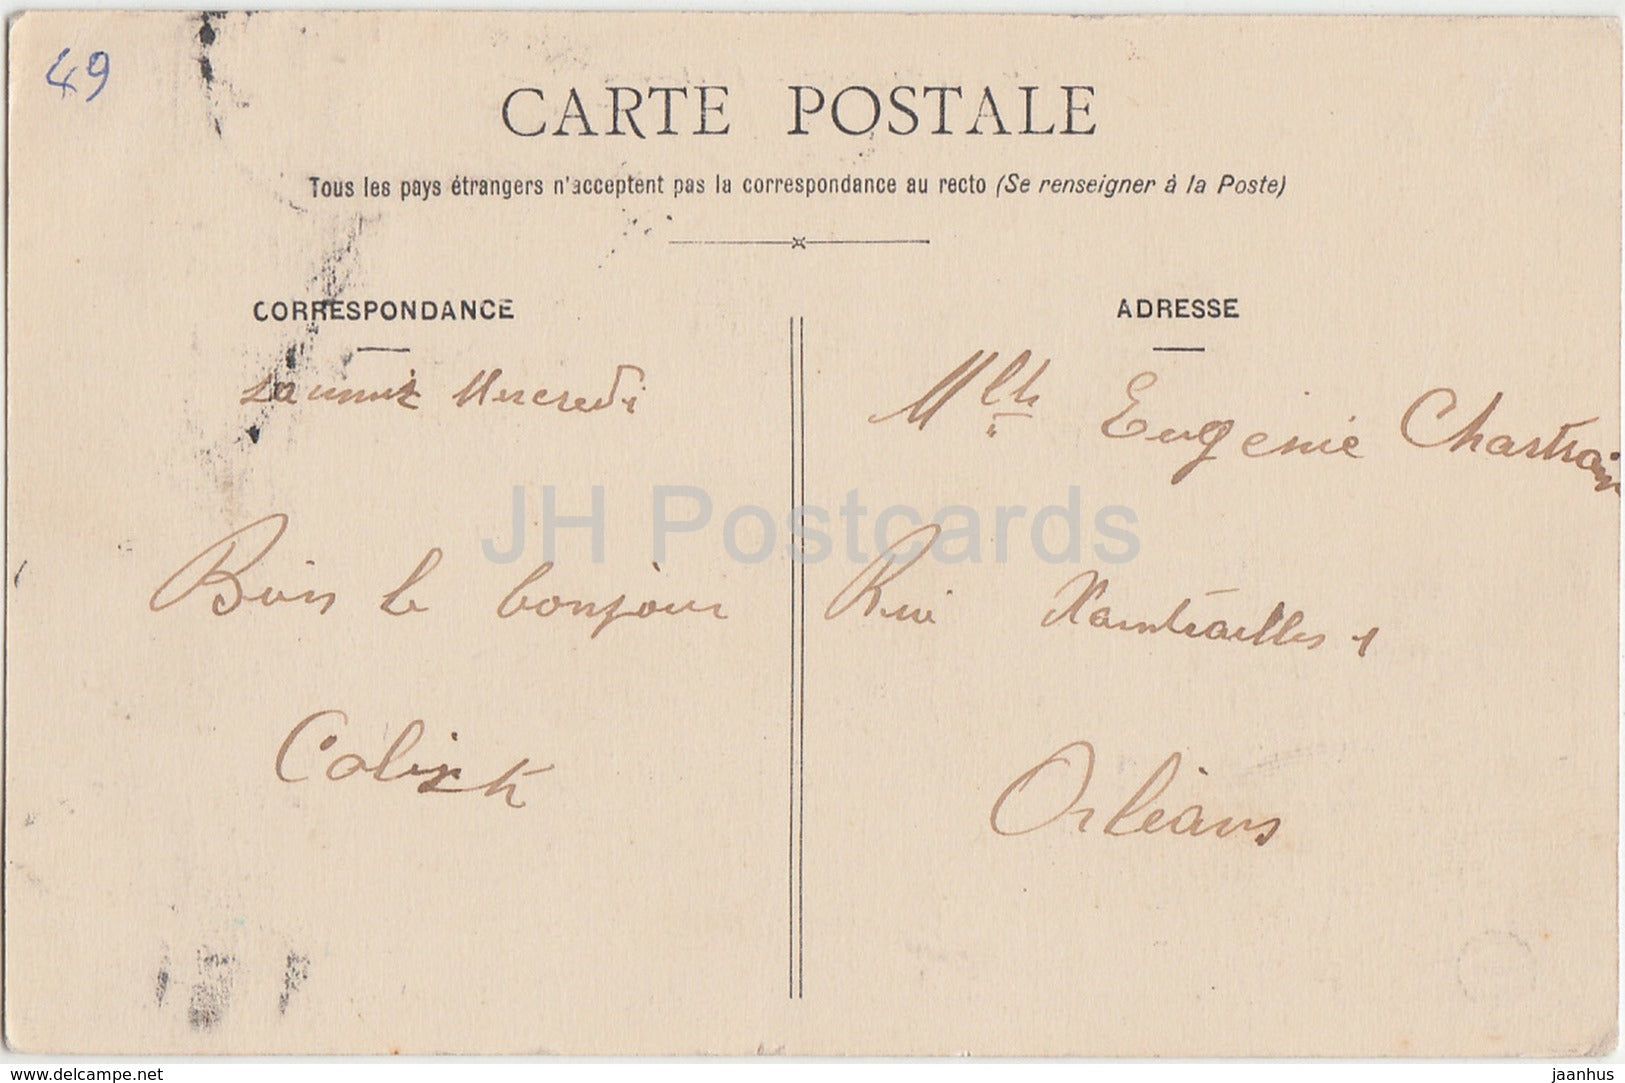 49
CARTE POSTALE
Tous les pays étrangers n'acceptent pas la correspondance au recto (Se renseigner à la Poste)
CORRESPONDANCE
Mercredi
le bonjour
ADRESSE
Mlle Eugenie Chartrain
Rue Xaintrailles 1
Orléans
JH Postcards
www.delcampe.net
jaanhus